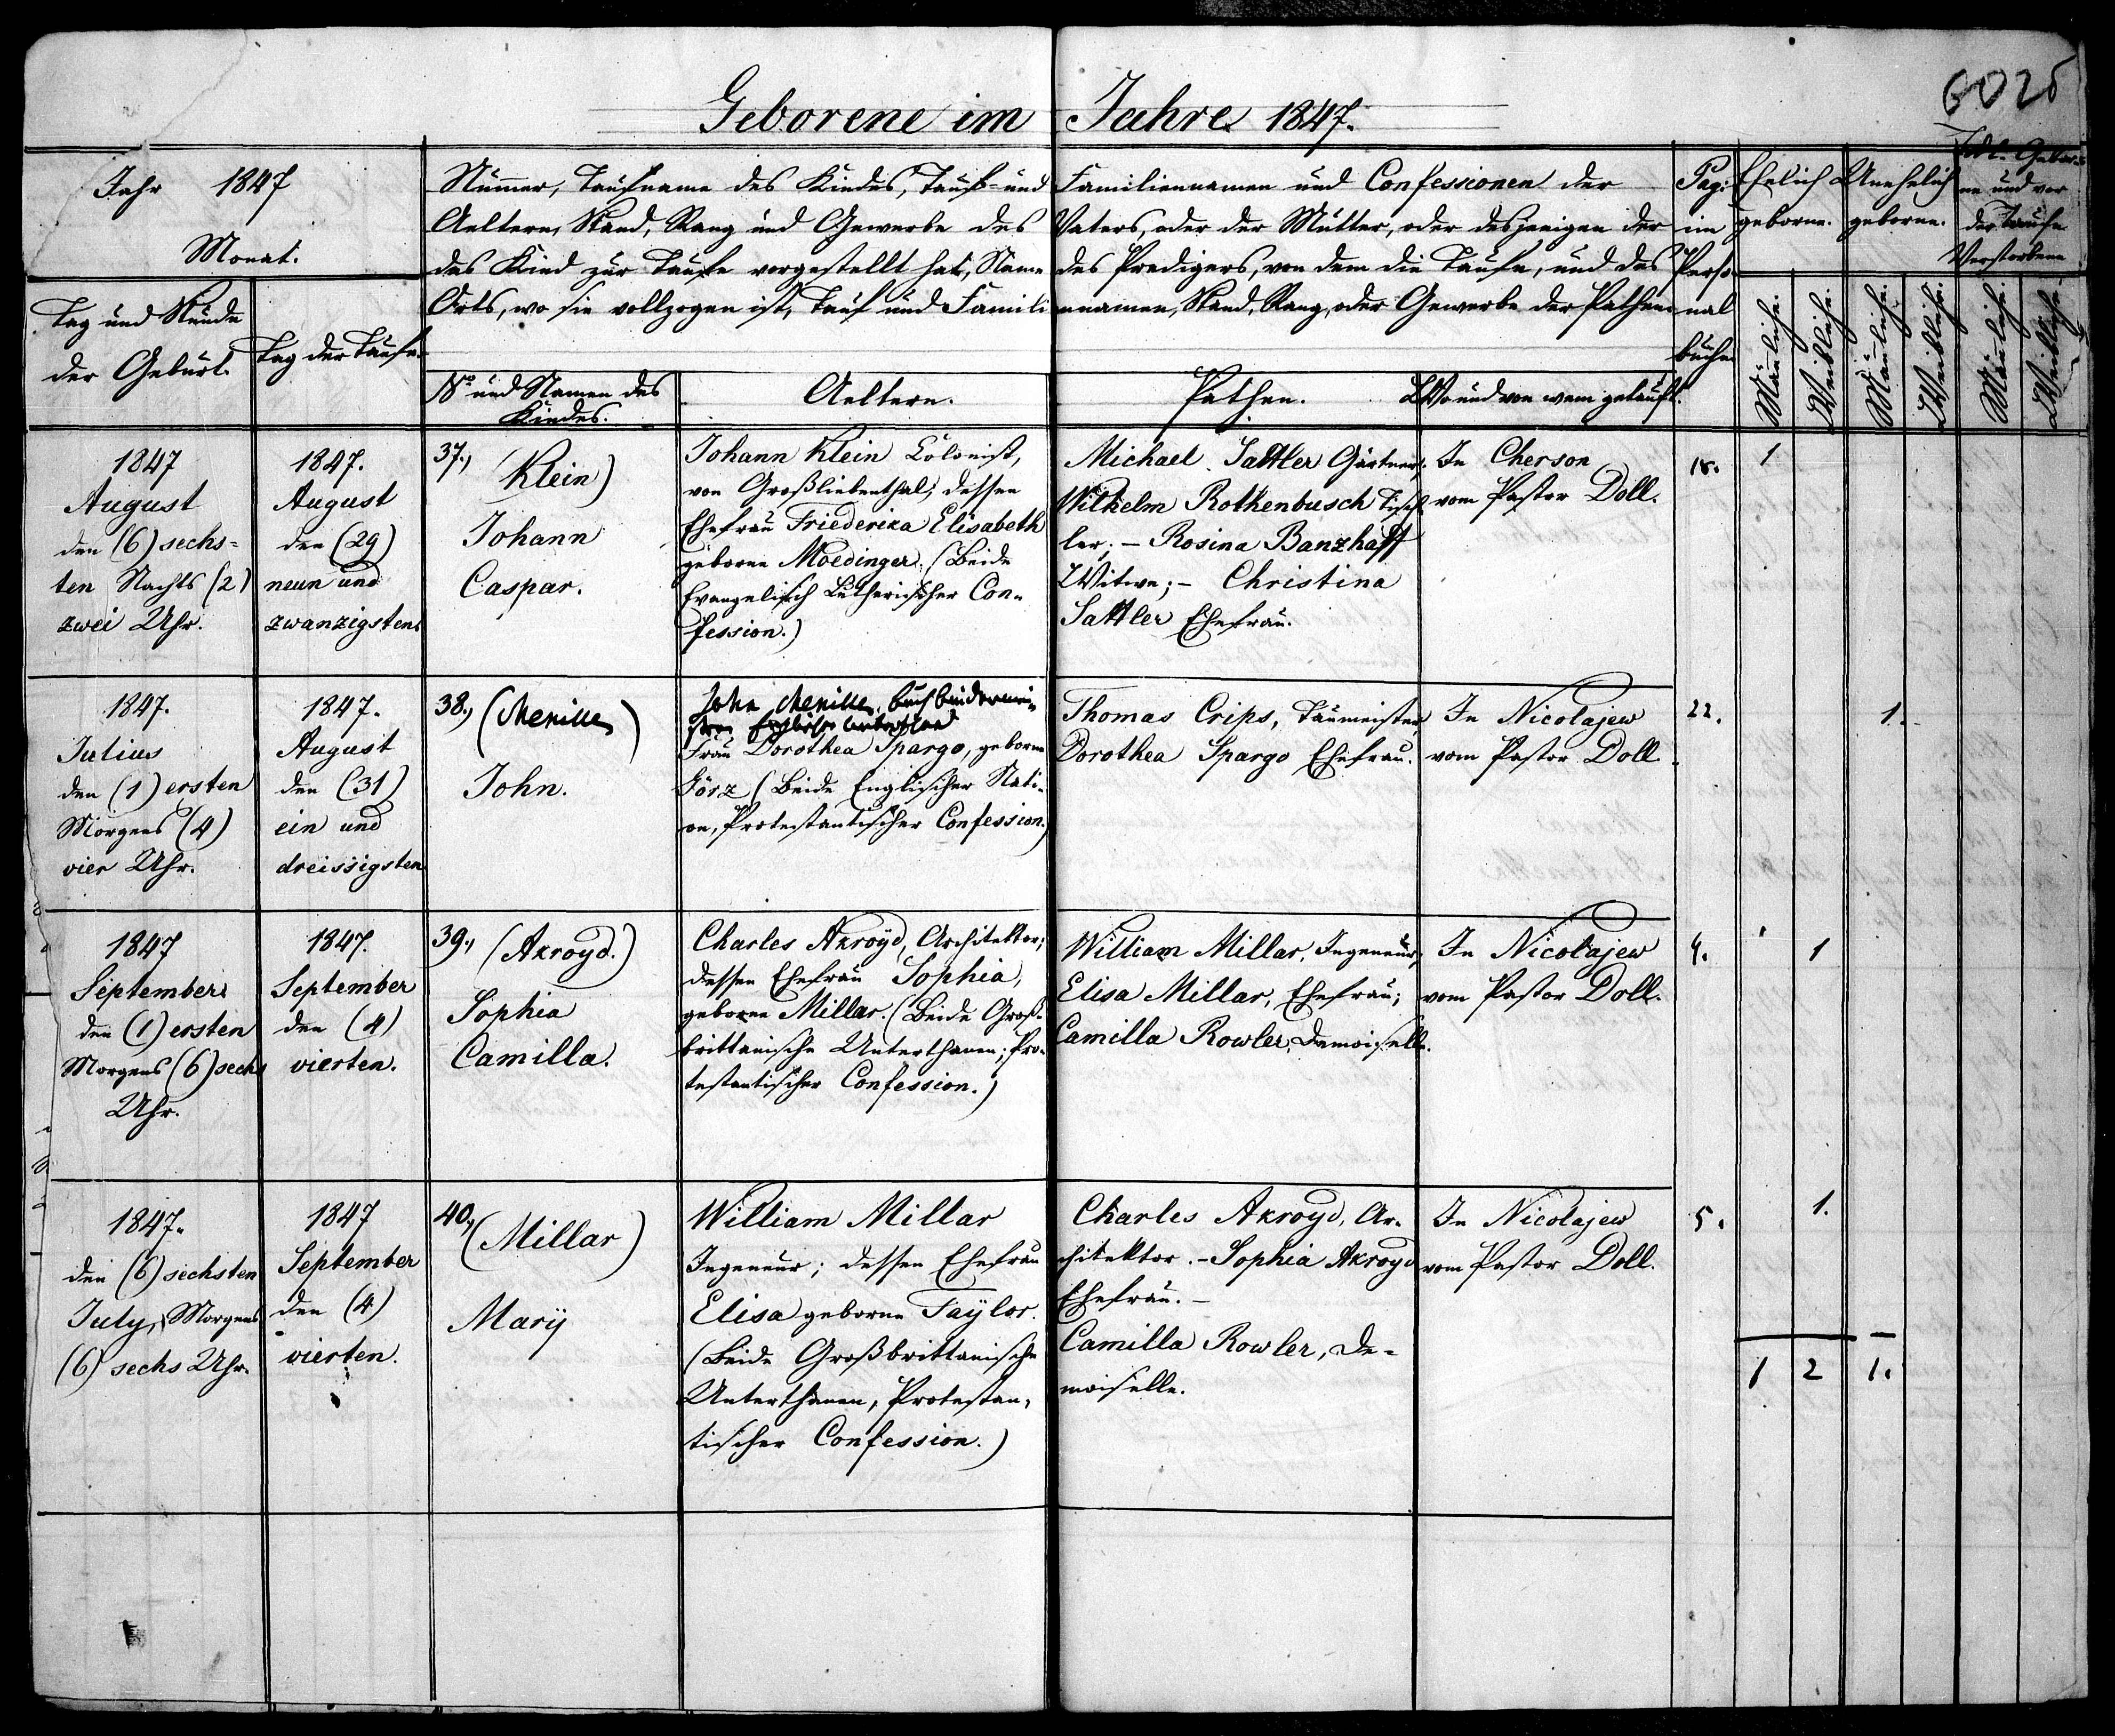 6025
Geborene im Jahre 1847.
Jahr 1847
Monat.
Tag und Stunde
der Geburt.
Tag der Taufe.
Nummer, Taufname des Kindes, Tauf- und Familiennamen und Confessionen der
Aeltern, Stand, Rang und Gewerbe des Vaters, oder der Mutter, oder desjenigen der
das Kind zur Taufe vorgestellt hat, Name des Predigers, von dem die Taufe, und des
Orts, wo sie vollzogen ist, Tauf und Familiennamen, Stand, Rang, oder Gewerbe der Pathen.
No und Namen des
Kindes.
Aeltern.
Pathen.
Wo und von wem getauft.
Pag:
im
Perso
nal
buche
Ehelich
geborne.
Unehelich
geborne.
Todt-Gebor-
ne und vor
der Taufe
Verstorbene
Mänliche.
Weibliche.
Mänliche.
Weibliche.
Mänliche.
Weibliche.
1847
August
den (6) sechs=
ten Nachts (2)
zwei Uhr.
1847.
August
den (29)
neun und
zwanzigsten
37.,
(Klein)
Johann
Caspar.
Johann Klein Colonist,
von Großliebenthal; dessen
Ehefrau Friederika Elisabeth
geborne Moedinger. (Beide
Evangelisch Lutherischer Con-
fession.)
Michael Sattler Gärtner;
Wilhelm Rothenbusch Tisch
ler; – Rosina Banzhaff
Witwe; – Christina
Sattler Ehefrau.
In Cherson
vom Pastor Doll.
18.
1
1847.
Julius
den (1) ersten
Morgens (4)
vier Uhr.
1847.
August
den (31)
ein und
dreissigsten
38.,
John.
John
Frau Dorothea Spargo, geborne
Görz (Beide Englischer Nati-
on, Protestantischer Confession.)
Thomas Crips, Baumeister,
Dorothea Spargo Ehefrau.
In Nicolajew
vom Pastor Doll.
22.
1.
1847
September
den (1) ersten
Morgens (6) sechs
Uhr.
1847.
September
den (4)
vierten.
39.,
(Akroyd.)
Sophia
Camilla.
Charles Akroyd, Architektor;
dessen Ehefrau Sophia,
geborne Millar. (Beide Groß-
brittanische Unterthanen; Pro-
testantischer Confession.)
William Millar, Ingeneur,
Elisa Millar, Ehefrau;
Camilla Rowler, Demoiselle.
In Nicolajew
vom Pastor Doll.
4.
1
1847.
den (6) sechsten
July, Morgens
(6) sechs Uhr.
1847
September
den (4)
vierten.
40.,
(Millar)
Marÿ
William Millar
Ingeneur; dessen Ehefrau
Elisa geborne Taÿlor.
(Beide Großbrittanische
Unterthanen, Protestan-
tischer Confession.)
Charles Akroyd, Ar-
chitektor. – Sophia Akroyd
Ehefrau. –
Camilla Rowler, De-
moiselle.
In Nicolajew
vom Pastor Doll.
5.
1.
1 2 1.